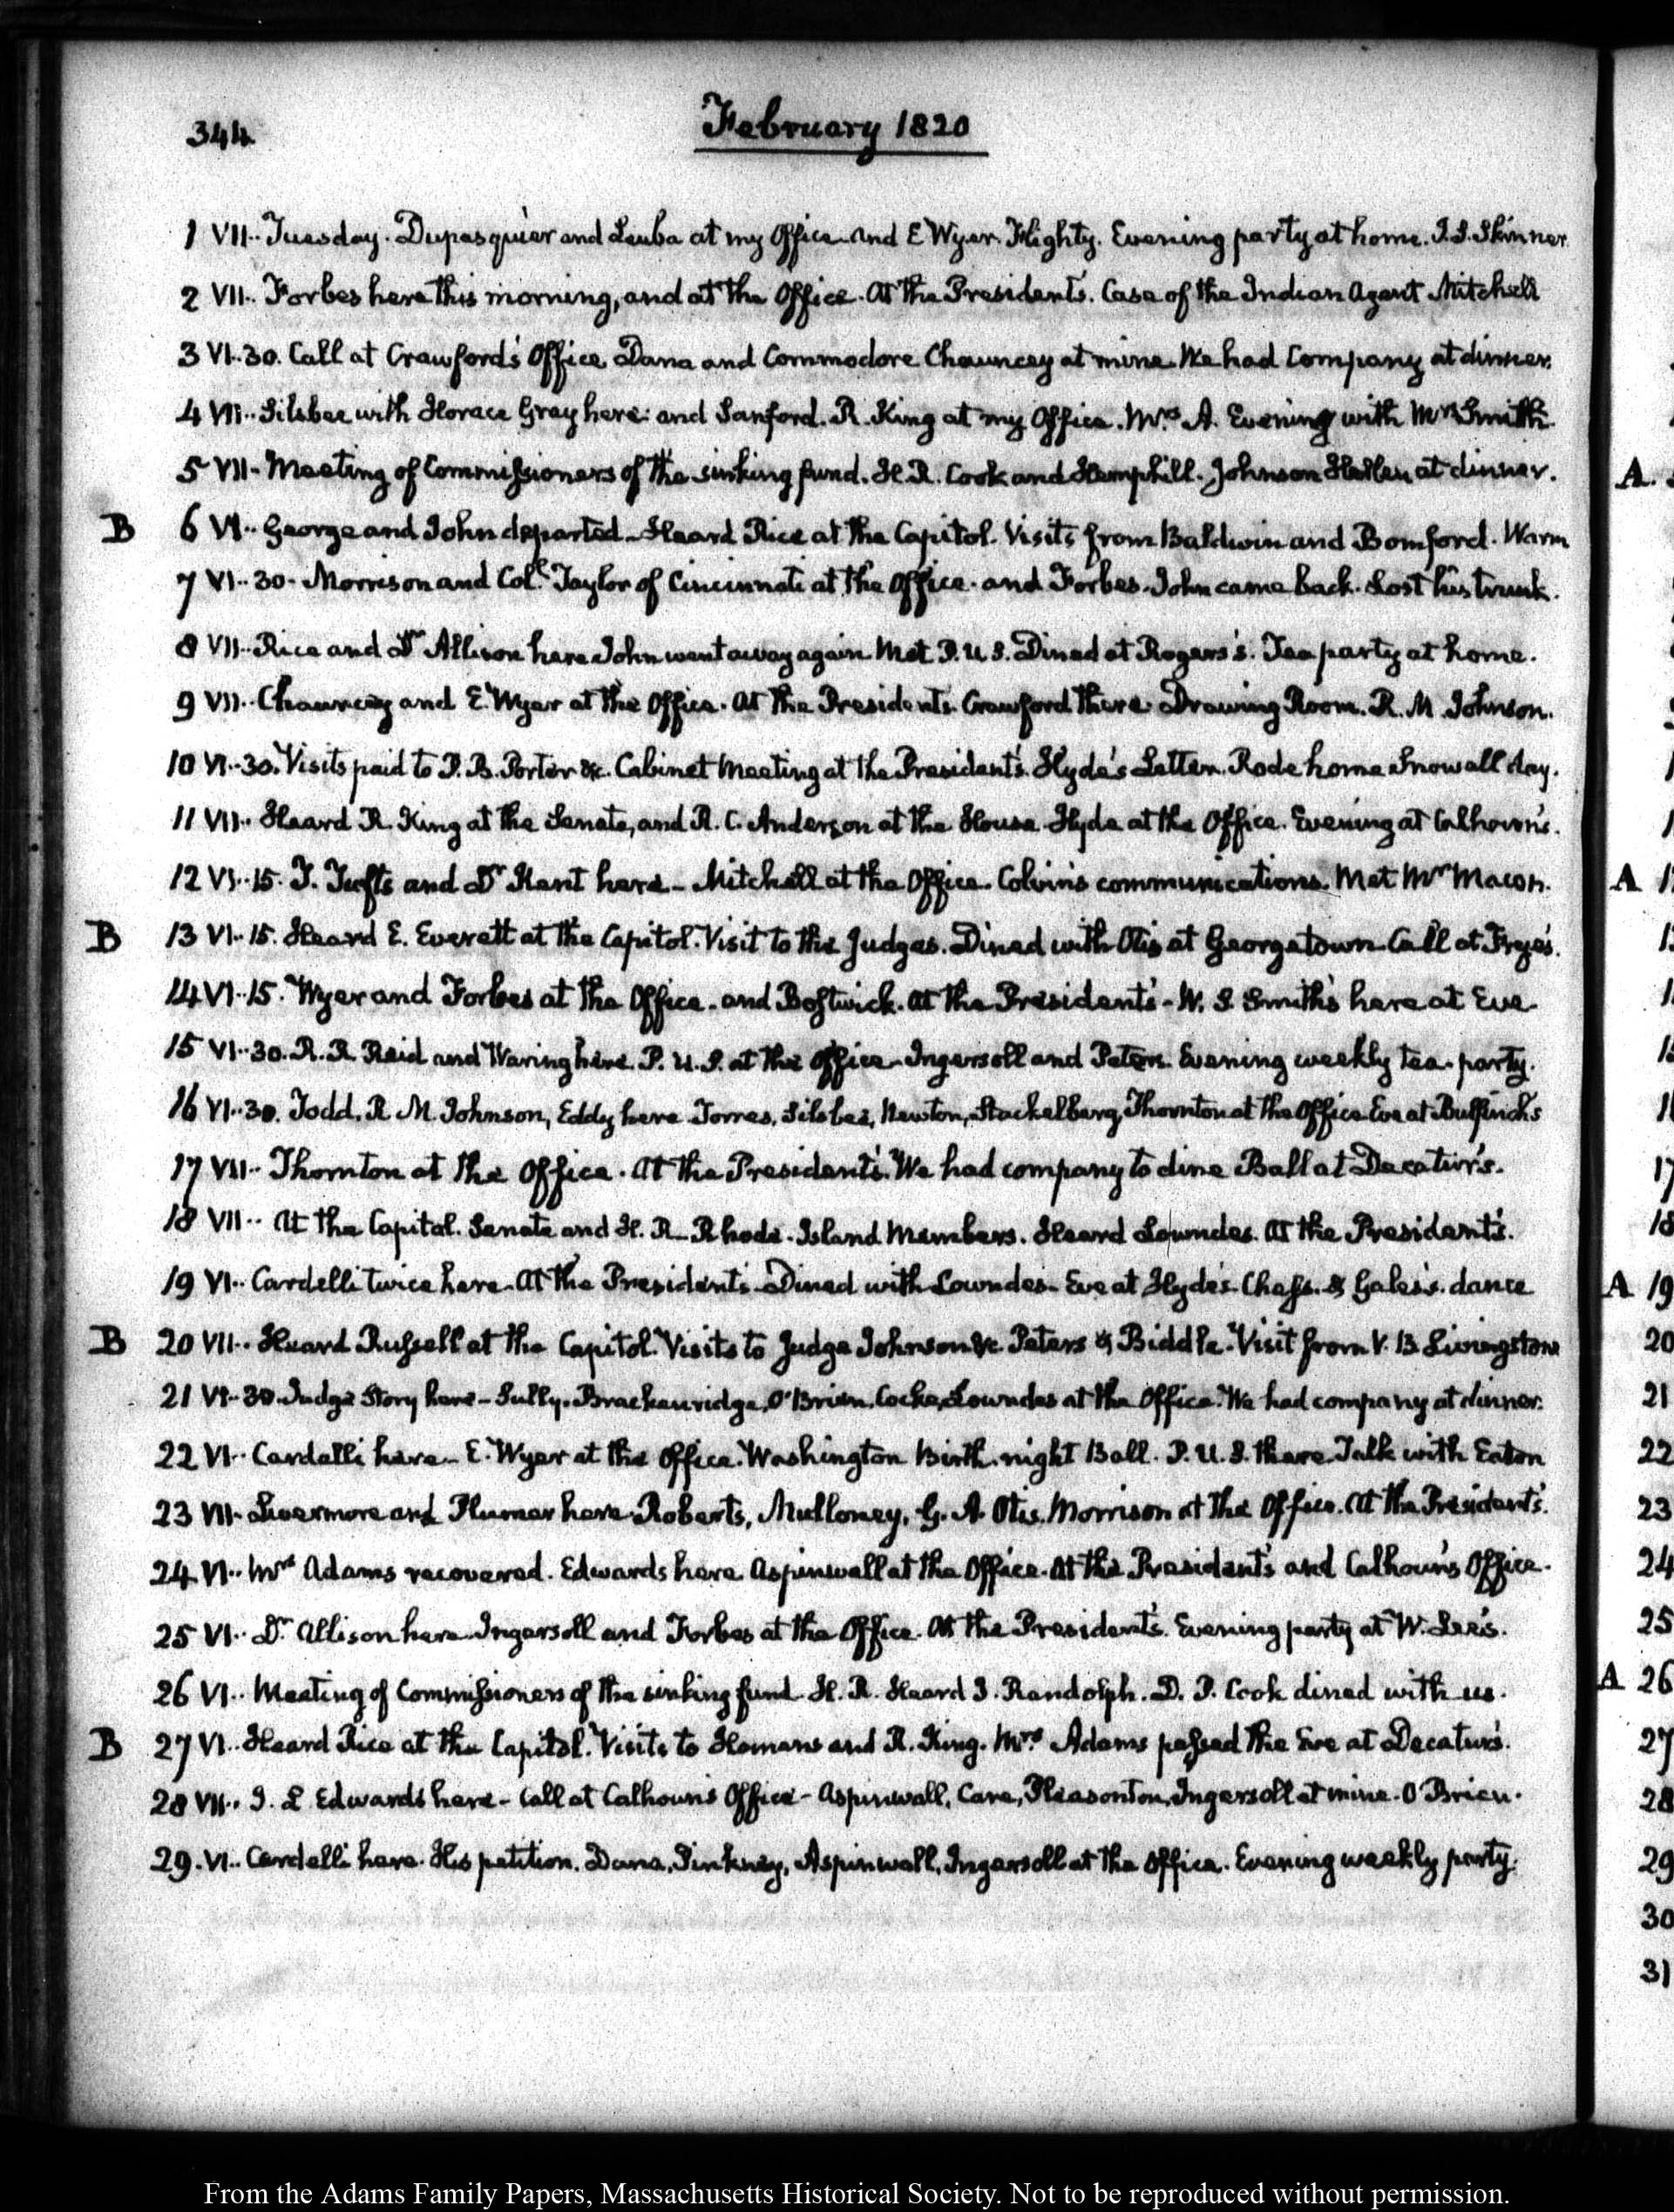 344
February 1820
1 VII.. Tuesday. Dupasquier and Leuba at my Office and E Wyer. Flighty. Evening party at home. J. S. Skinner
2 VII.. Forbes here this morning, and at the Office. At the Presidents. Case of the Indian Agent Mitchell
3 VI..30. Call at Crawford's Office. Dana and Commodore Chauncey at mine. We had Company at dinner.
4 VII.. Silsbee with Horace Gray here: and Sanford. R. King at my Office. Mrs. A. Evening with Mrs Smith.
A.
5 VII- Meeting of Commissioners of the sinking fund. H. R. Cook and Hemphill. Johnson Hellen at dinner.
B 6 VI.. George and John departed. Heard Rice at the Capitol. Visits from Baldwin and Bomford. Warm
7 VI..30- Morrison and Coll. Taylor of Cincinnati at the Office. and Forbes. John came back. Lost his trunk.
8 VII.. Rice and Dr Allison here. John went away again. Met P. U. S. Dined at Rogers's. Tea party at home.
9 VII.. Chauncey and E. Wyer at the Office. At the Presidents. Crawford there. Drawing Room. R. M. Johnson.
10 VI..30. Visits paid to P. B. Porter &c. Cabinet Meeting at the President's. Hyde's Letter. Rode home. Snow all day.
11 VII.. Heard R. King at the Senate, and R. C. Anderson at the House. Hyde at the Office. Evening at Calhoun's.
A 12 VI..15. J. Tufts and Dr Kent here- Mitchell at the Office. Colvin's communications. Met Mr Macon.
B 13 VI..15. Heard E. Everett at the Capitol. Visit to the Judges. Dined with Otis at Georgetown. Call at Frye's.
14 VI..15. Wyer and Forbes at the Office. and Bostwick. At the President's- W. S. Smith's here at Eve.
15 VI..30. R. R. Reid and Waring here. P. U. S. at the Office- Ingersoll and Peters. Evening weekly tea-party.
16 VI..30. Todd. R M. Johnson, Eddy here. Torres, Silsbee, Newton, Stackelberg, Thornton at the Office. Eve at Bulfinch's
17 VII.. Thornton at the Office. At the President's. We had company to dine. Ball at Decatur's.
18 VII.. At the Capitol. Senate and H. R. Rhode-Island Members. Heard Lowndes. At the President's.
A 19 VI.. Cardelli twice here. At the President's. Dined with Lowndes- Eve at Hyde's. Chess. & Gales's. dance
B 20 VII.. Heard Russell at the Capitol. Visits to Judge Johnson &c. Peters & Biddle. Visit from V. B Livingstone
21 VI..30. Judge Story here- Sully. Brackenridge, O'Brien, Cocke, Lowndes at the Office. We had company at dinner.
22 VI.. Cardelli here- E. Wyer at the Office. Washington Birth-night Ball. P. U. S. there. Talk with Eaton
23 VII- Livermore and Plumer here. Roberts, Mulloney, G. A. Otis. Morrison at the Office. At the President's.
24. VI.. Mrs Adams recovered. Edwards here. Aspinwall at the Office. At the President's and Calhoun's Office.
25 VI.. Dr. Allison here. Ingersoll and Forbes at the Office. At the President's. Evening party at W. Lee's.
A 26 VI.. Meeting of Commissioners of the sinking fund. H. R. Heard J. Randolph. D. P. Cook dined with us.
B 27 VI.. Heard Rice at the Capitol. Visits to Homans and R. King. Mrs. Adams passed the Eve at Decatur's.
28 VII.. J. L Edwards here- Call at Calhoun's Office- Aspinwall, Care, Pleasonton, Ingersoll at mine. O'Brien.
29. VI.. Cardelli here. His petition. Dana, Pinkney, Aspinwall, Ingersoll at the Office. Evening weekly party.
17
18
19
20
21
22
23
24
25
26
27
28
29
30
31
From the Adams Family Papers, Massachusetts Historical Society. Not to be reproduced without permission.